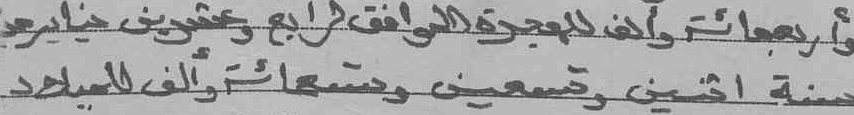 وأربعمائة وألف للهجرة الموافق لرابع وعشرين من يناير
سنة اثنين وتسعين وتسعمائة وألف للميلاد